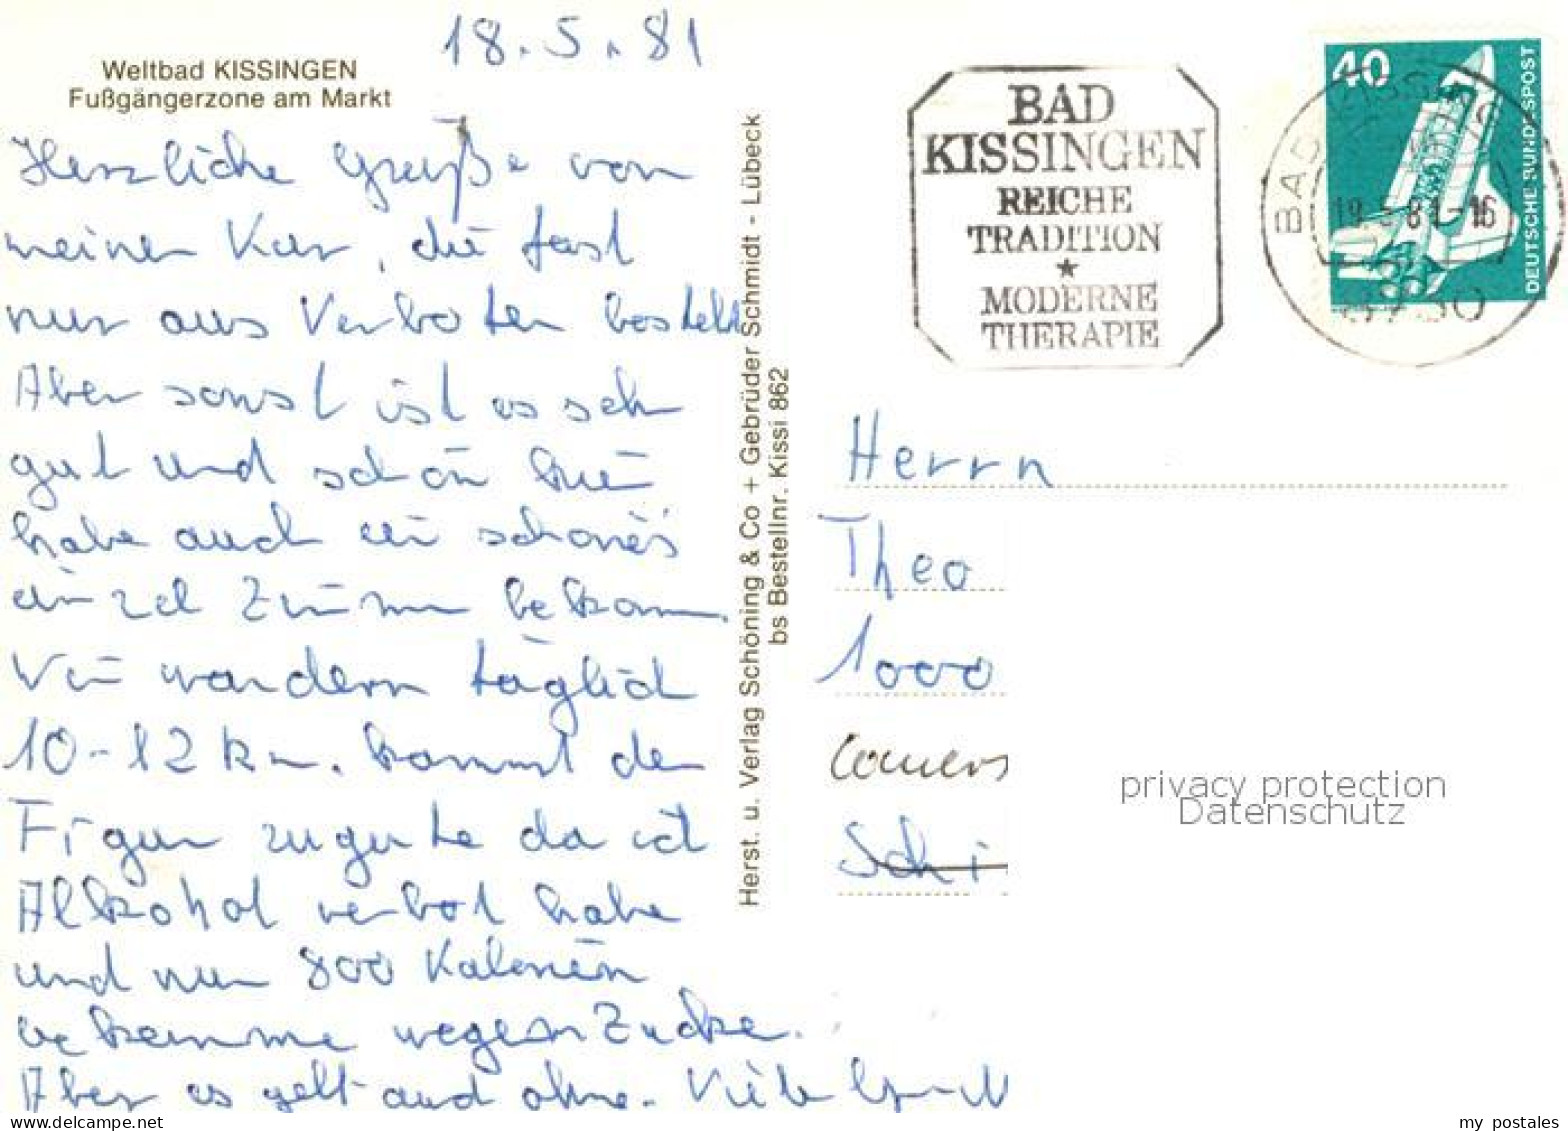 18.5.81
Weltbad KISSINGEN
Fußgängerzone am Markt
Herzliche Grüße von
meiner Kur, die fast
nur aus Verboten besteht
Aber sonst ist es sehr
gut und schön hier
habe auch ein schönes
einzel Zimmer bekomm.
Wir wandern täglich
10-12 km. kommt der
Figur zugute da ich
Alkohol verbot habe
und nur 800 Kalorien
bekomme wegen Zucker.
Aber es geht auch ohne. Viele
Herst. u. Verlag Schöning & Co + Gebrüder Schmidt - Lübeck
bs Bestellnr. Kissi 862
BAD
KISSINGEN
REICHE
TRADITION
★
MODERNE
THERAPIE
40
DEUTSCHE BUNDESPOST
BAD
19.5.81-16
8730
Herrn
Theo
1000
Schi
privacy protection
Datenschutz
my postales